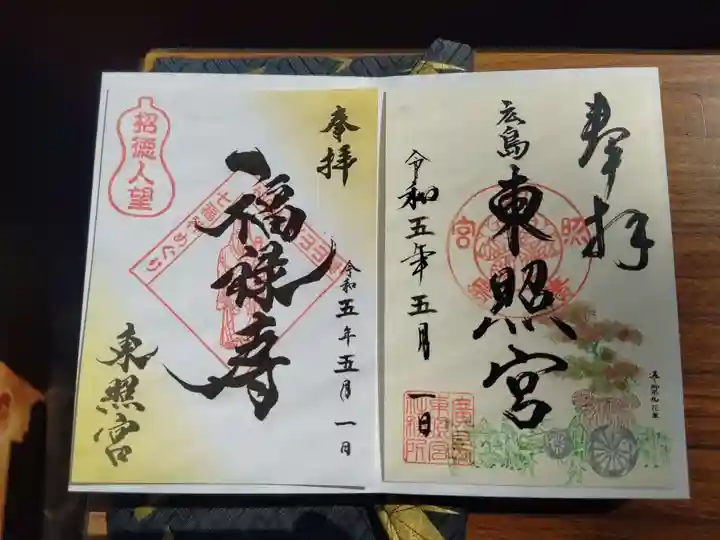 奉拝
広島
東照宮
令和五年五月
一日
奉拝
福禄寿
令和五年五月一日
東照宮
招徳人望
七福神めぐり